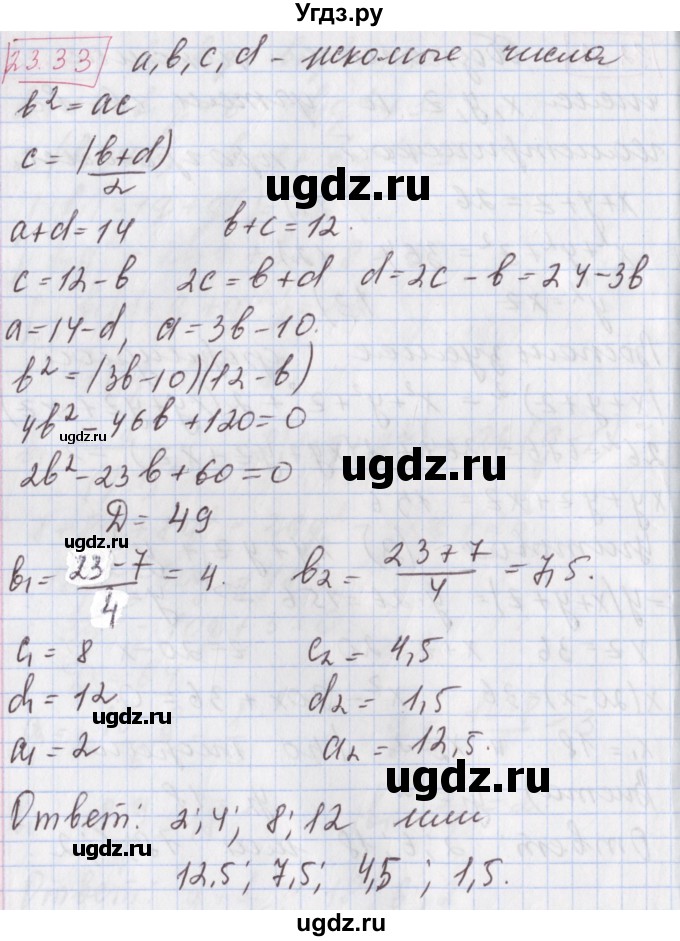 Угдз.ру
23.33 a, b, c, d - искомые числа
b² = ac
c = (b+d)/2
ugdz.ru
a+d=14 b+c=12.
c=12-b 2c=b+d d=2c-b=24-3b
a=14-d, a=3b-10.
b²=(3b-10)(12-b)
4b²-46b+120=0
ugdz.ru
ugdz.ru
2b²-23b+60=0
Д=49
ugdz.ru
b₁= (23-7)/4 = 4. b₂= (23+7)/4 = 7,5.
c₁=8 c₂=4,5
d₁=12 d₂=1,5
ugdz.ru
a₁=2 a₂=12,5.
ugdz.ru
Ответ: 2; 4; 8; 12 или
ugdz.ru
12,5; 7,5; 4,5; 1,5.
ugdz.ru